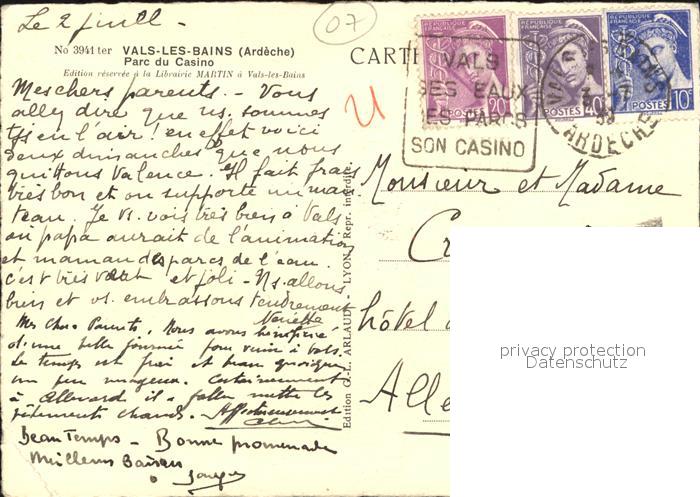 Le 2 juill
07
No 3941 ter VALS-LES-BAINS (Ardèche)
Parc du Casino
Edition réservée à la Librairie MARTIN à Vals-les-Bains
CARTE
Mes chers parents. - Vous
allez dire que ns. sommes
ts en l'air! en effet voici
deux dimanches que nous
quittons Valence. Il fait frais
très bon et on supporte un man-
teau. Je vs. vois très bien à Vals
où papa aurait de l'animation
et maman des parcs de l'eau.
c'est très et joli - Ns. allons
bien et vs. embrassons tendrement
Mes Chers Parents, Nous avons bénéficié
d'une belle journée pour venir à Vals.
Le temps est frais et beau quoique
un peu nuageux. Certainement
à Allevard il a fallu mettre les
vêtements chauds. Affectueusement
Beau Temps - Bonne promenade
Milliers Baisers
VALS
SES EAUX
SES PARCS
SON CASINO
REPUBLIQUE FRANÇAISE
POSTES
20
REPUBLIQUE FRANÇAISE
POSTES
40
POSTES
10
VALS LES BAINS
ARDECHE
Monsieur et Madame
hôtel
Alle
Edition G.-L. ARLAUD - LYON - Repr. interdite
privacy protection
Datenschutz